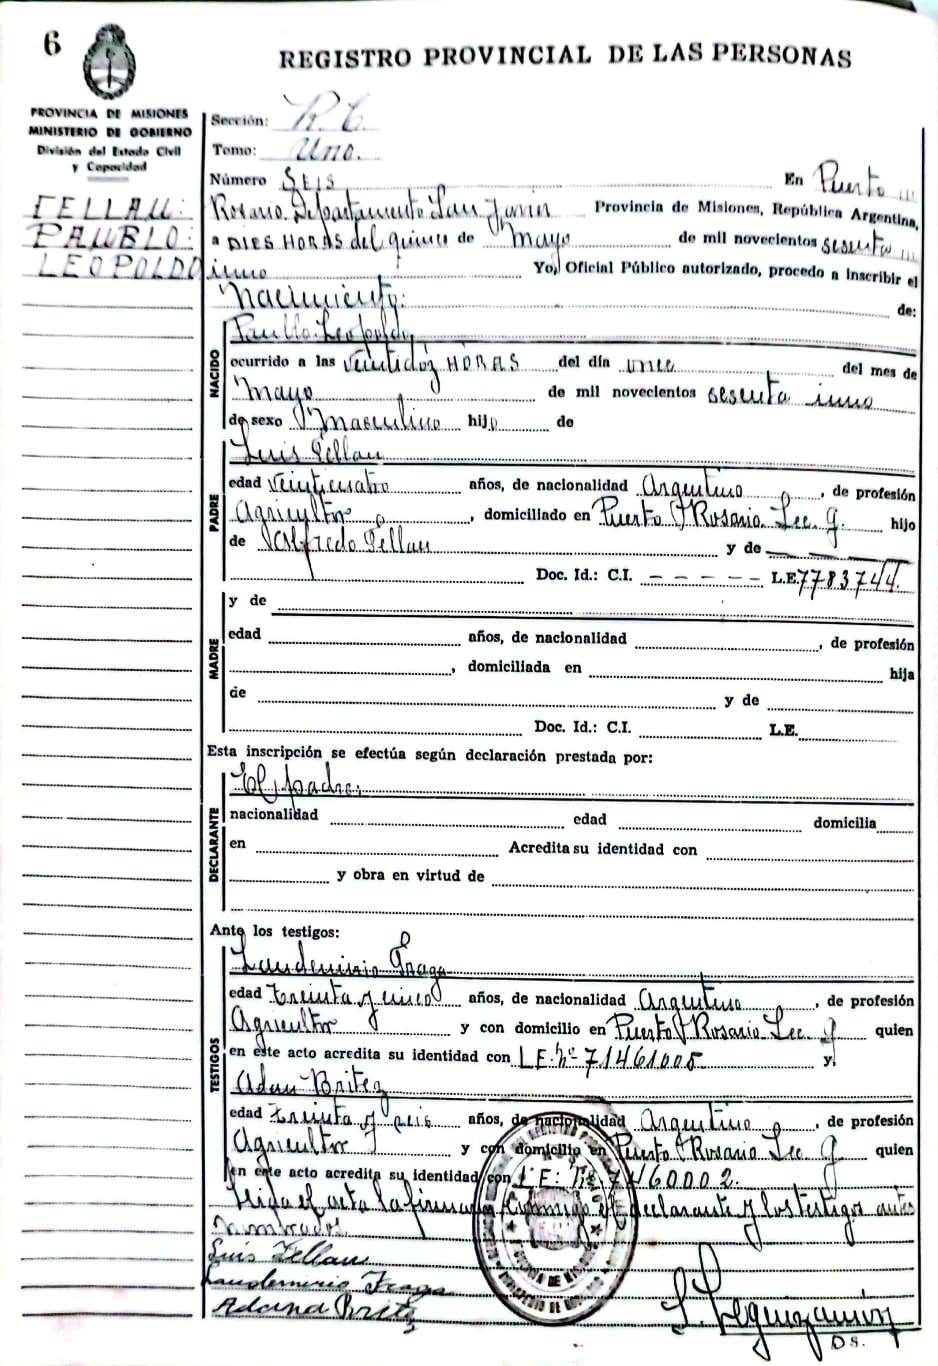 6
REGISTRO PROVINCIAL DE LAS PERSONAS
PROVINCIA DE MISIONES
MINISTERIO DE GOBIERNO
División del Estado Civil
y Capacidad
FELLAU:
PAUBLO:
LEOPOLDO
Sección: R.C.
Tomo: Uno.
Número SEIS En Puerto
Rosario Departamento San Javier Provincia de Misiones, República Argentina,
a DIES HORAS del quince de Mayo de mil novecientos sesenta
iuno Yo, Oficial Público autorizado, procedo a inscribir el
Nacimiento: de:
NACIDO
Paublo Leopoldo
ocurrido a las veintidoz HORAS del día once del mes de
Mayo de mil novecientos sesenta iuno
de sexo Masculino hijo de
PADRE
Luis Fellau
edad veinticuatro años, de nacionalidad Argentino, de profesión
Agricultor, domiciliado en Puerto Rosario Sec. 9. hijo
de Alfredo Fellau y de
Doc. Id.: C.I. – – – – – L.E. 7783744.
MADRE
y de
edad años, de nacionalidad , de profesión
, domiciliada en hija
de y de
Doc. Id.: C.I. L.E.
Esta inscripción se efectúa según declaración prestada por:
DECLARANTE
El padre:
nacionalidad edad domicilia
en Acredita su identidad con
y obra en virtud de
Ante los testigos:
TESTIGOS
Laudemirio Fraga
edad treinta y cinco años, de nacionalidad Argentino, de profesión
Agricultor y con domicilio en Puerto Rosario Sec. 9 quien
en este acto acredita su identidad con L.E. Nº 71461005 y,
Adan Britez
edad treinta y seis años, de nacionalidad Argentino, de profesión
Agricultor y con domicilio en Puerto Rosario Sec. 9 quien
en este acto acredita su identidad con L.E: Nº 7460002.
leida el acta la firman conmigo el declarante y los testigos antes
nombrados
Luis Fellau
Laudemirio Fraga
Adana Britez
L. Leguizamón
DS.